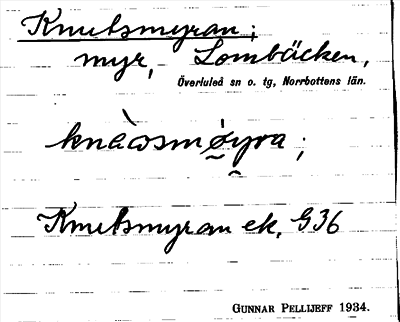 Knutsmyran;
myr, Lombäcken,
Överluleå sn o. tg, Norrbottens län.
Knutsmyran ek, G36
GUNNAR PELLIJEFF 1934.